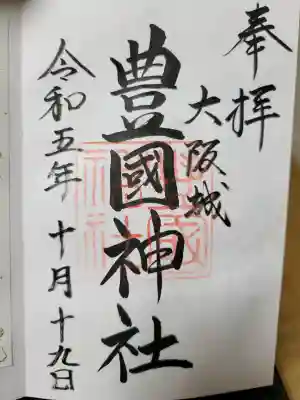 奉拝
大阪城
豊國神社
令和五年十月十九日